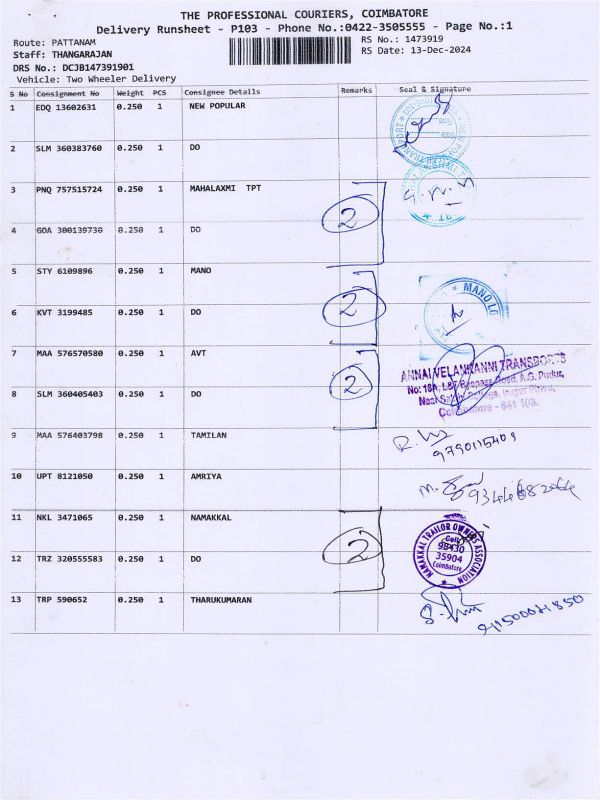 THE PROFESSIONAL COURIERS, COIMBATORE
Delivery Runsheet - P103 - Phone No.:0422-3505555 - Page No.:1
Route: PATTANAM RS No.: 1473919
Staff: THANGARAJAN RS Date: 13-Dec-2024
DRS No.: DCJB147391901
Vehicle: Two Wheeler Delivery
S No Consignment No Weight PCS Consignee Details Remarks Seal & Signature
1 EDQ 13602631 0.250 1 NEW POPULAR
2 SLM 360383760 0.250 1 DO
3 PNQ 757515724 0.250 1 MAHALAXMI TPT
2
4 GOA 300139730 0.250 1 DO
5 STY 6109896 0.250 1 MANO
MANO LO
2
6 KVT 3199485 0.250 1 DO
7 MAA 576570580 0.250 1 AVT
ANNAI VELANKANNI TRANSPORTS
2
8 SLM 360405403 0.250 1 DO
9 MAA 576403798 0.250 1 TAMILAN
9790115409
10 UPT 8121050 0.250 1 AMRIYA
11 NKL 3471065 0.250 1 NAMAKKAL
NAMAKKAL TRAILOR OWNERS ASSOCIATION
Cell:
98430
35904
Coimbatore
2
12 TRZ 320555583 0.250 1 DO
13 TRP 590652 0.250 1 THARUKUMARAN